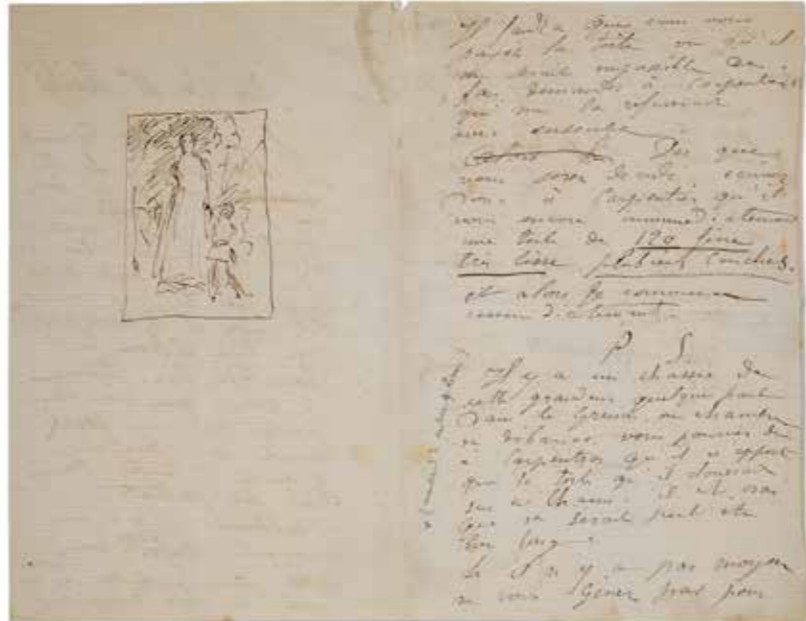 Il faudra que vous vous
la toile vu qu'il
me serait impossible de
demander à Carpentier
qui me la refuserait
avec
Dès que
vous serez décidé écrivez
donc à Carpentier qu'il
vous envoie immédiatement
une toile de 120 fine
très lisse plusieurs couches.
et alors je commence
immédiatement.
P S
Il y a un chassis de
cette grandeur quelque part
dans le Grenier ou chambre
de débarras vous pouvez dire
à Carpentier qu'il apporte
que la toile qu'il clouerait
sur ce chassis. il est vrai
que ce serait peut etre
bien long.
Si il n'y a pas moyen
ne vous Gênez pas pour